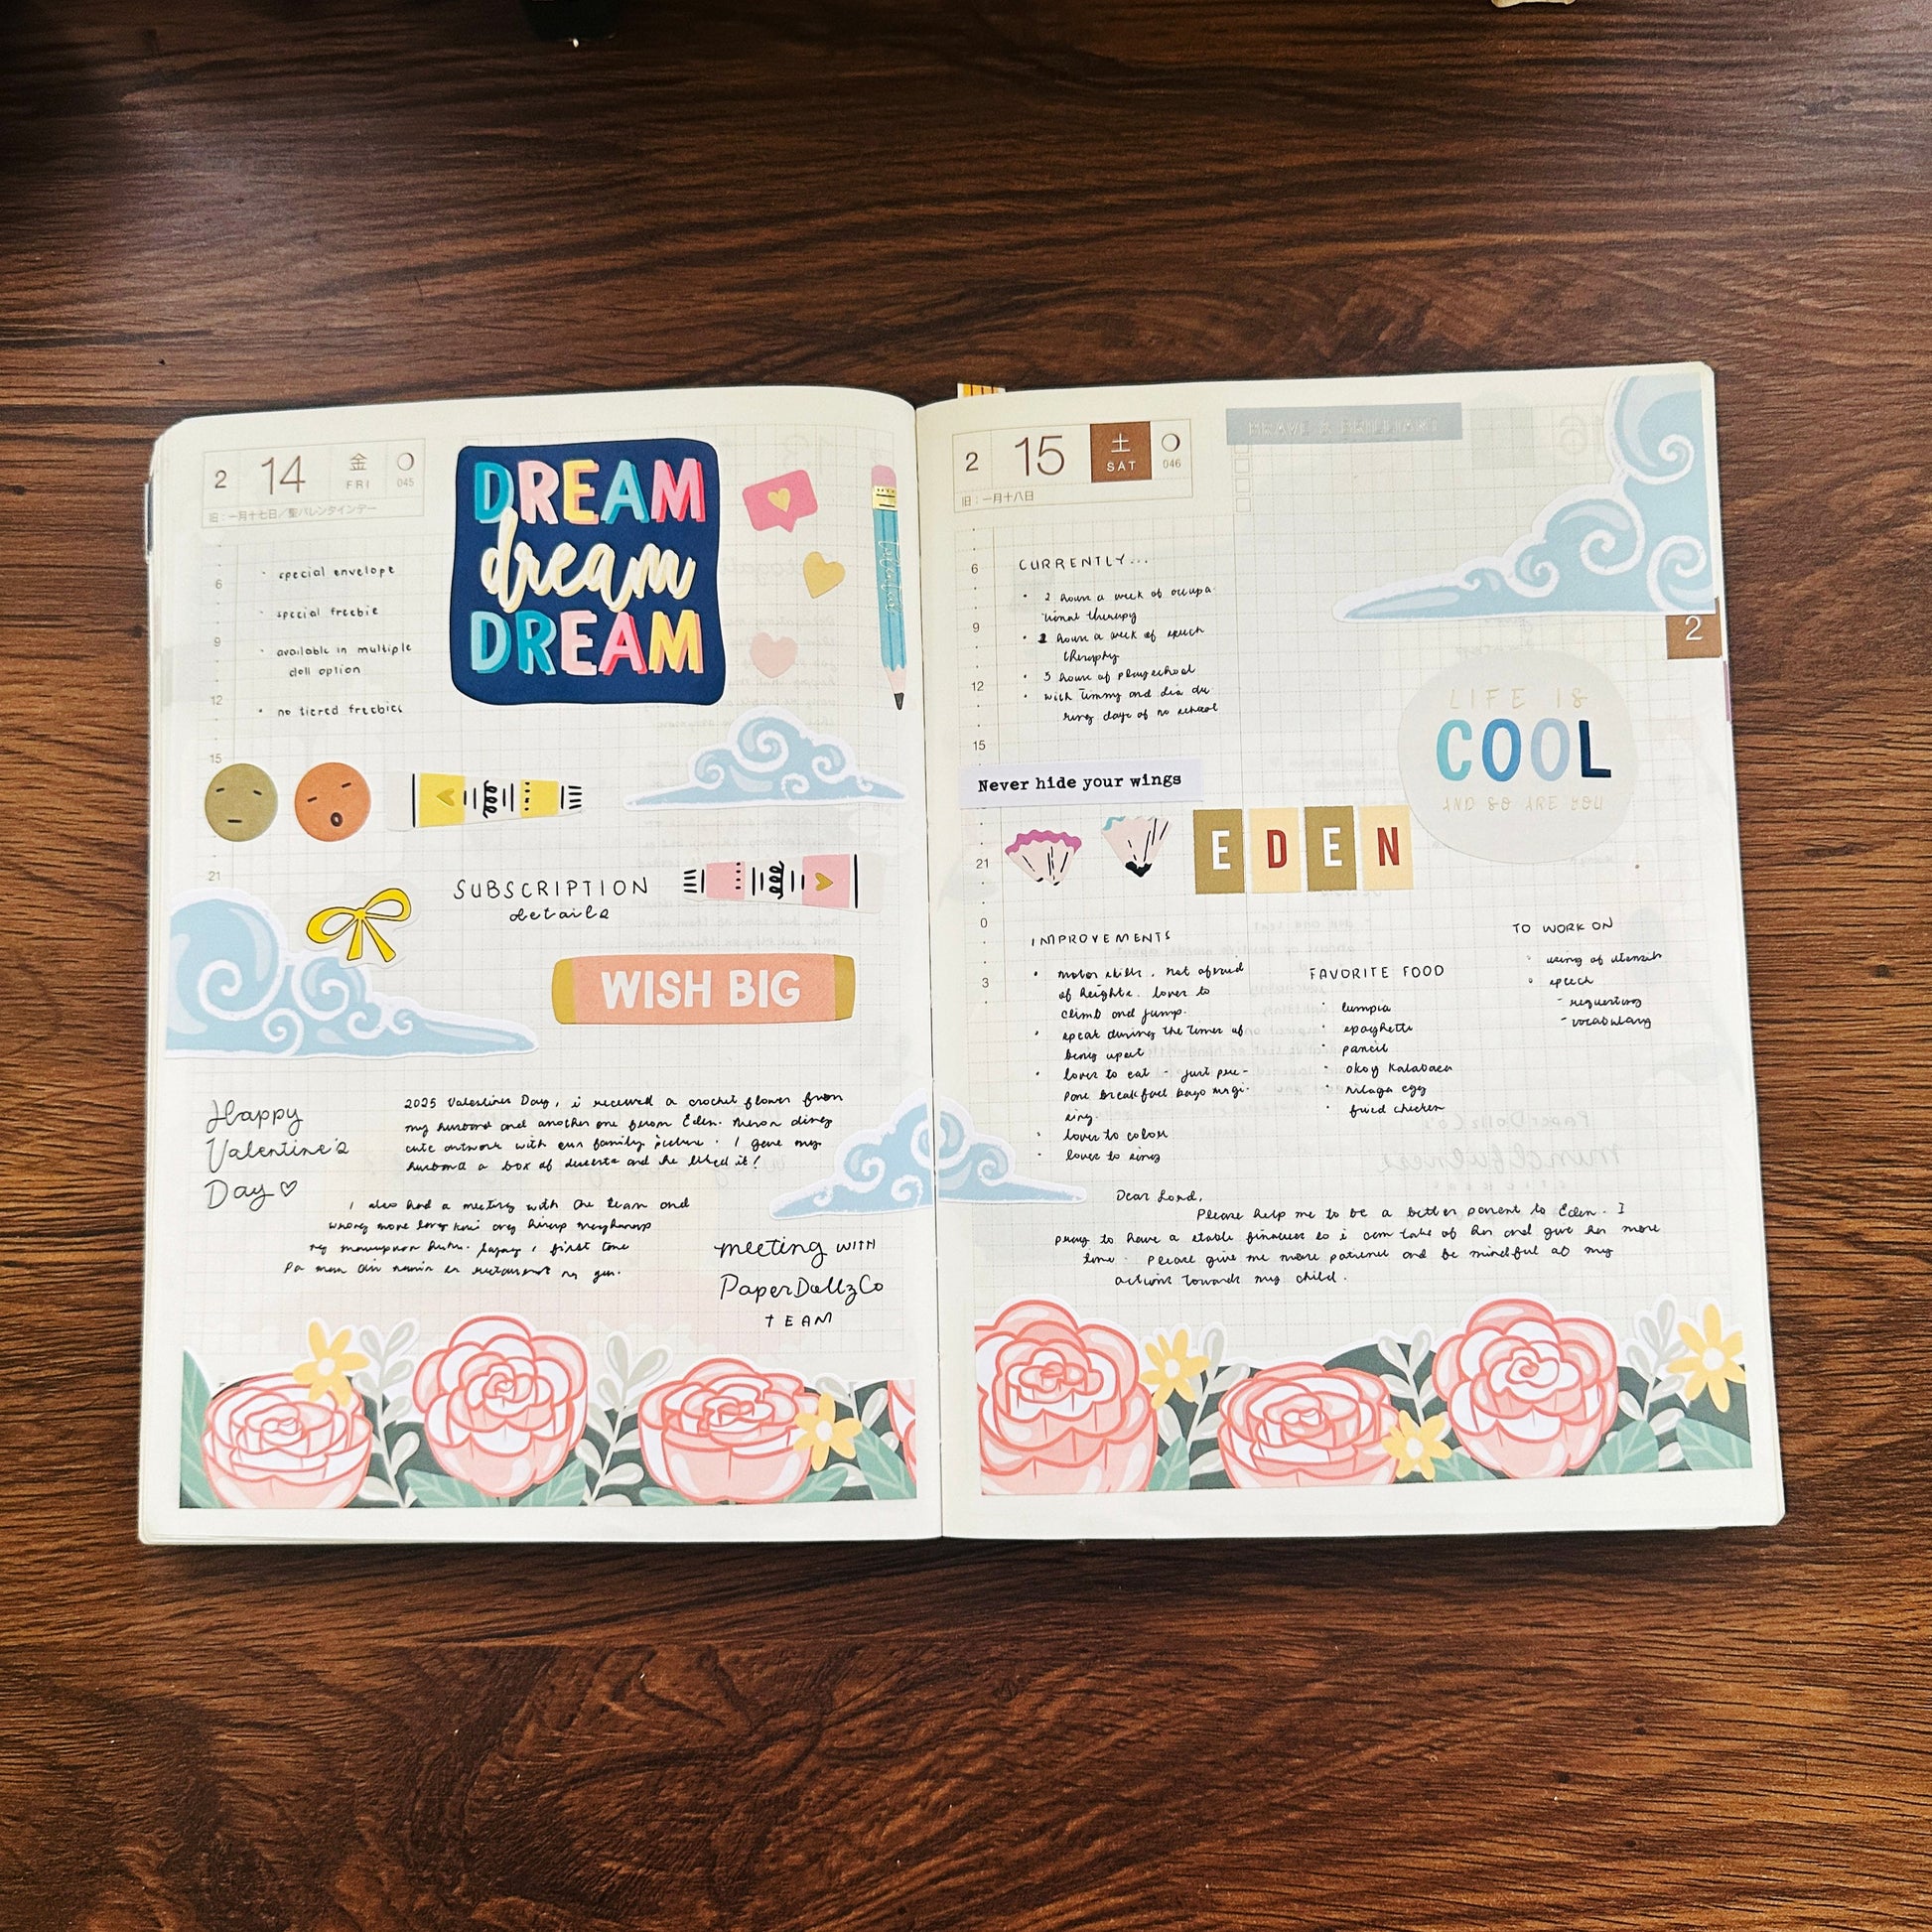 2 14 金 FRI 045
旧:一月十七日/聖バレンタインデー
DREAM
dream
DREAM
6
9
12
15
21
• special envelope
• special freebie
• available in multiple
doll option
• no tiered freebies
SUBSCRIPTION
details
WISH BIG
Happy
Valentine's
Day
2025 Valentines Day, i received a crochet flower from
my husband and another one from Eden. cute artwork with our family picture. I gave my
husband a box of desserts and he liked it!
I also had a meeting with the team and
first time
meeting WITH
PaperDollzCo
TEAM
2 15 土 SAT 046
旧:一月十八日
BRAVE & BRILLIANT
6
9
12
15
21
0
3
2
CURRENTLY...
• 2 hours a week of occupa
tional therapy
• 2 hours a week of speech
theraphy
• 3 hours of playschool
• with Timmy and dia du
ring days of no school
LIFE IS
COOL
AND SO ARE YOU
Never hide your wings
EDEN
IMPROVEMENTS
• motor skills. not afraid
of heights. loves to
climb and jump.
• speak during the times of
being upset
• loves to eat - just pre-
pare breakfast bago
• loves to color
• loves to sing
FAVORITE FOOD
• lumpia
• spaghetti
• pancit
• okoy kalabasa
• nilaga egg
• fried chicken
TO WORK ON
• using of utensils
• speech
- requesting
- vocabulary
Dear Lord,
Please help me to be a better parent to Eden. I
pray to have a stable finances so i can take of her and give her more
time. Please give me more patience and be mindful of my
actions towards my child.